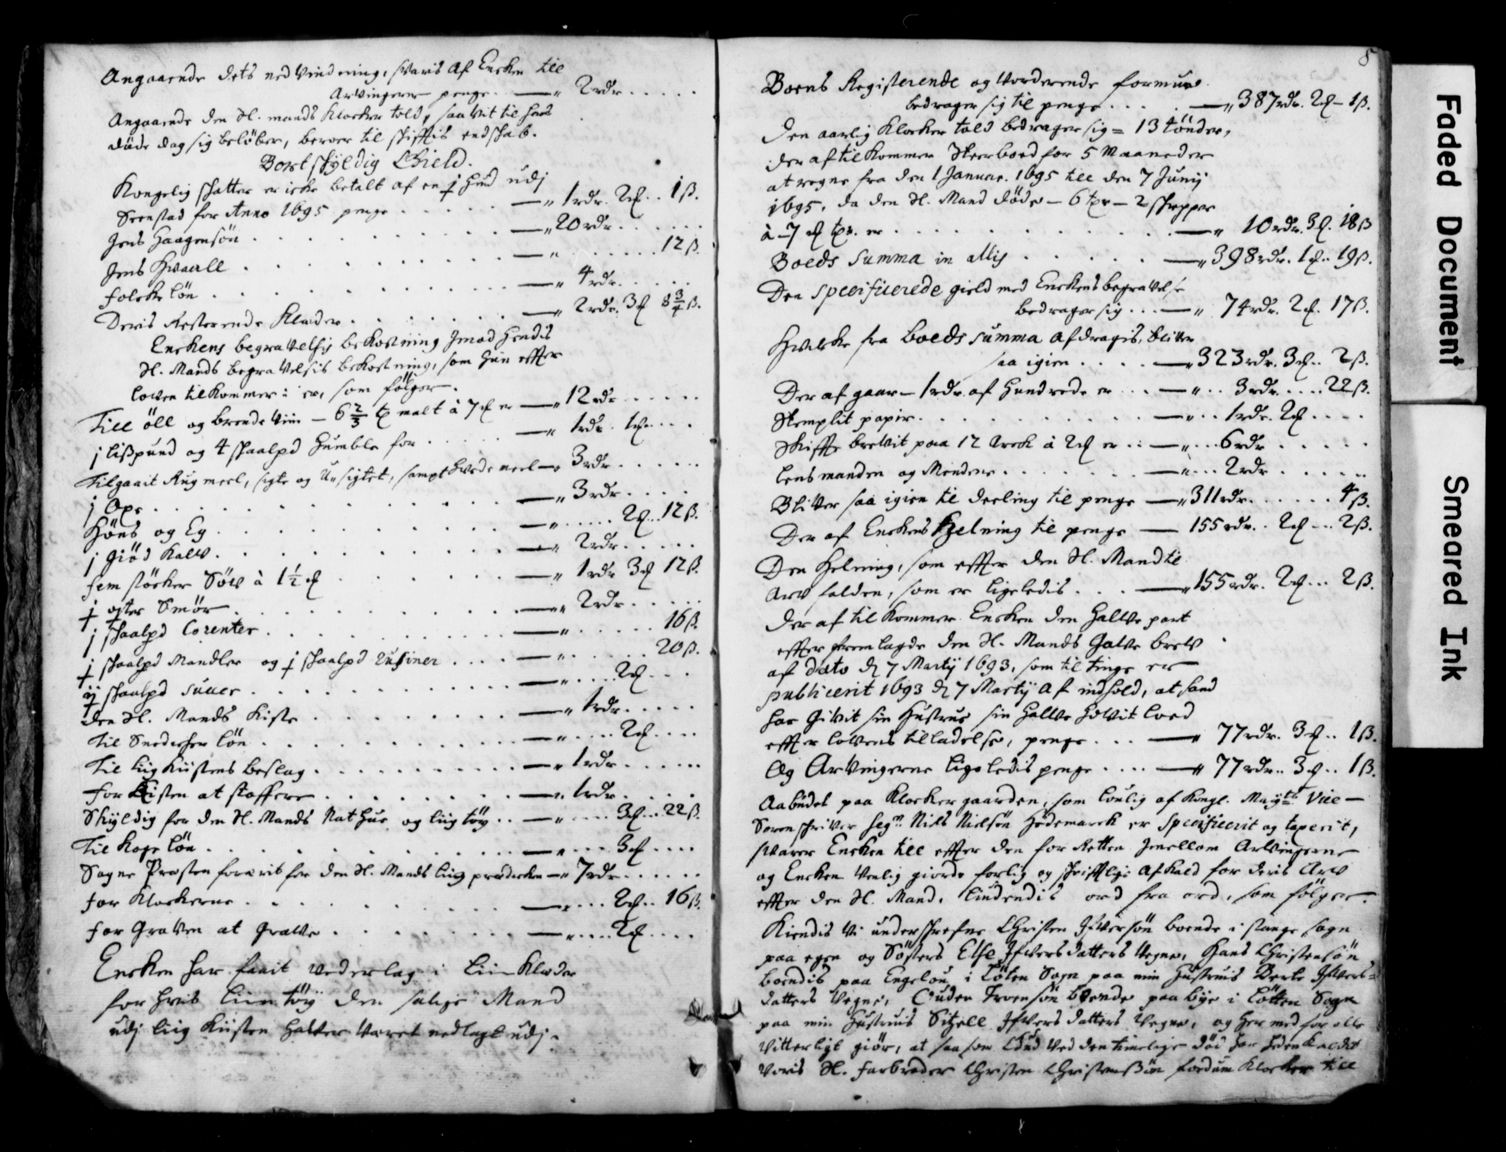 Angaaende dets nedVindning, svaris af Encken till
Arvingerne penge — " 2 rdr
Angaaende den Sl. mands Klocker told, saavit til hans
döde dag sig beløber, beroer til skifftis endskab.
Bortskyldig Gield.
Kongelig skatter er icke betalt af en ½ Hud udj
Seenstad for Anno 1695 penge — " 1 rdr. 2 . 1 ß.
Jens Haagensön — " 20 rdr
Jens — " 12 ß.
Folcke lön — " 4 rdr.
Deris Resterende Klæder — " 2 rdr. 3 8 3/4 ß.
Enckens begravelsis bekostning Jmod Hendis
Sl. Mands begravelsis bekostning, som hun effter
loven tilkommer: er som følger.
Till öll og brendeViin — 6 2/3 malt à 7 er — " 12 rdr
1 lißpund og 4 skaalpd Humble for — " 1 rdr. 1
Rugmeel, sigte og u-sigtet, sampt hvedemeel — " 3 rdr
1 Oxe — " 3 rdr.
Höns og Eg — " 2 . 12 ß.
1 giöd kalv — " 2 rdr
Fem støcker à 1 1/2 — " 1 rdr 3 12 ß.
Smör — " 2 rdr.
1 skaalpd Corenter — " 16 ß.
½ skaalpd Mandler og ½ skaalpd Rusiner — " 20 ß.
skaalpd — " 2
den Sl. Mands Kiste — " 1 rdr.
Til Snedcher lön — " 2
Til liig Kiistens beslag — " 1 rdr
For Kisten at staffere — " 1 rdr.
Skyldig for den Sl. Mands Nat hue og liigtöy — " 3 . 22 ß.
Til Koge lön — " 3
Sogne Præsten forærit for den Sl. Mands liig prædicken — " 7 rdr.
For Klockerne — " 2 . 16 ß.
For Graven at grave — " 2
Encken har faait vederlag i Liin Klæder
for hvis Liintöy den salige Mand
udj liig Kiisten haver været nedlagt udj.
8
Boens Registerende og Vorderende formue
bedrager sig til penge — " 387 rdr. 2 – 1 ß.
Den aarlig Klocker told bedrager sig = 13 tönder,
der af tilkommer Sterboed for 5 Maaneder
at regne fra den 1 Januar. 1695 till den 7 Junij
1695, da den Sl. Mand döde — 6 tdr — 2 skepper
à 7 tdr. er — " 10 rdr. 3 . 18 ß
Boeds Summa in allis — " 398 rdr. 1 . 19 ß.
Den specificerede gield med Enckens begravelse
bedrager sig — " 74 rdr. 2 . 17 ß.
Hvilcke fra Boeds summa afdragis, bliver
saa igien — " 323 rdr. 3 . 2 ß.
Der af gaar — 1 rdr. af hundrede er — " 3 rdr. 22 ß.
Stemplit papir — " 1 rdr. 2
Skiffte brevit paa 12 Arck à 2 er — " 6 rdr
Lensmanden og Mendene — " 2 rdr
Bliver saa igien til deeling til penge — " 311 rdr. 4 ß.
Der af Enckens Helning til penge — 155 rdr. 2 . 2 ß.
Den Helning, som effter den Sl. Mand til
Arv falden, som er ligeledis — " 155 rdr. 2 . 2 ß.
Der af tilkommer Encken den halve part
effter fremlagde den Sl. Mands Gave brev
af dato d 7 Martij 1693, som til tinge er
publicerit 1693 d 7 Martij af indhold, at hand
har givit sin Hustrue sin halve Hovit lood
effter lovens tilladelse, penge — " 77 rdr. 3 . 1 ß.
Og Arvingerne ligeledis penge — " 77 rdr. 3 . 1 ß.
Aabudet paa Klocker gaarden, som lovlig af Kongl. Maytz Vice —
Sorenskriver Segr. Nils Nielsön Hedemarck er specificerit og taxerit,
svarer Encken till effter den for Retten Jmellom Arvingerne
og Encken Venlig giorde forlig og skrifftlige Afkald for deris Arv
effter den Sl. Mand, liudendis ord fra ord, som fölger.
Kiendis Vi underskrefne Christen Jfversön boende i Stange sogn
paa egen og Søsters Else Jfversdatters Vegne, Hans Christensön
boendis paa Engelou i Löten Sogn paa min Hustrues Berte Jfvers-
datters Vegne, Guden Troensön boende paa bye i Lötten Sogn
paa min Hustrues Sitzell Jfversdatters Vegne, og her med for alle
Vitterligt giör, at saasom Gud Ved den timelige död har hedenkaldet
Voris Sl. Farbroder Christen Christensön fordum Klocker till
Faded Document
Smeared Ink